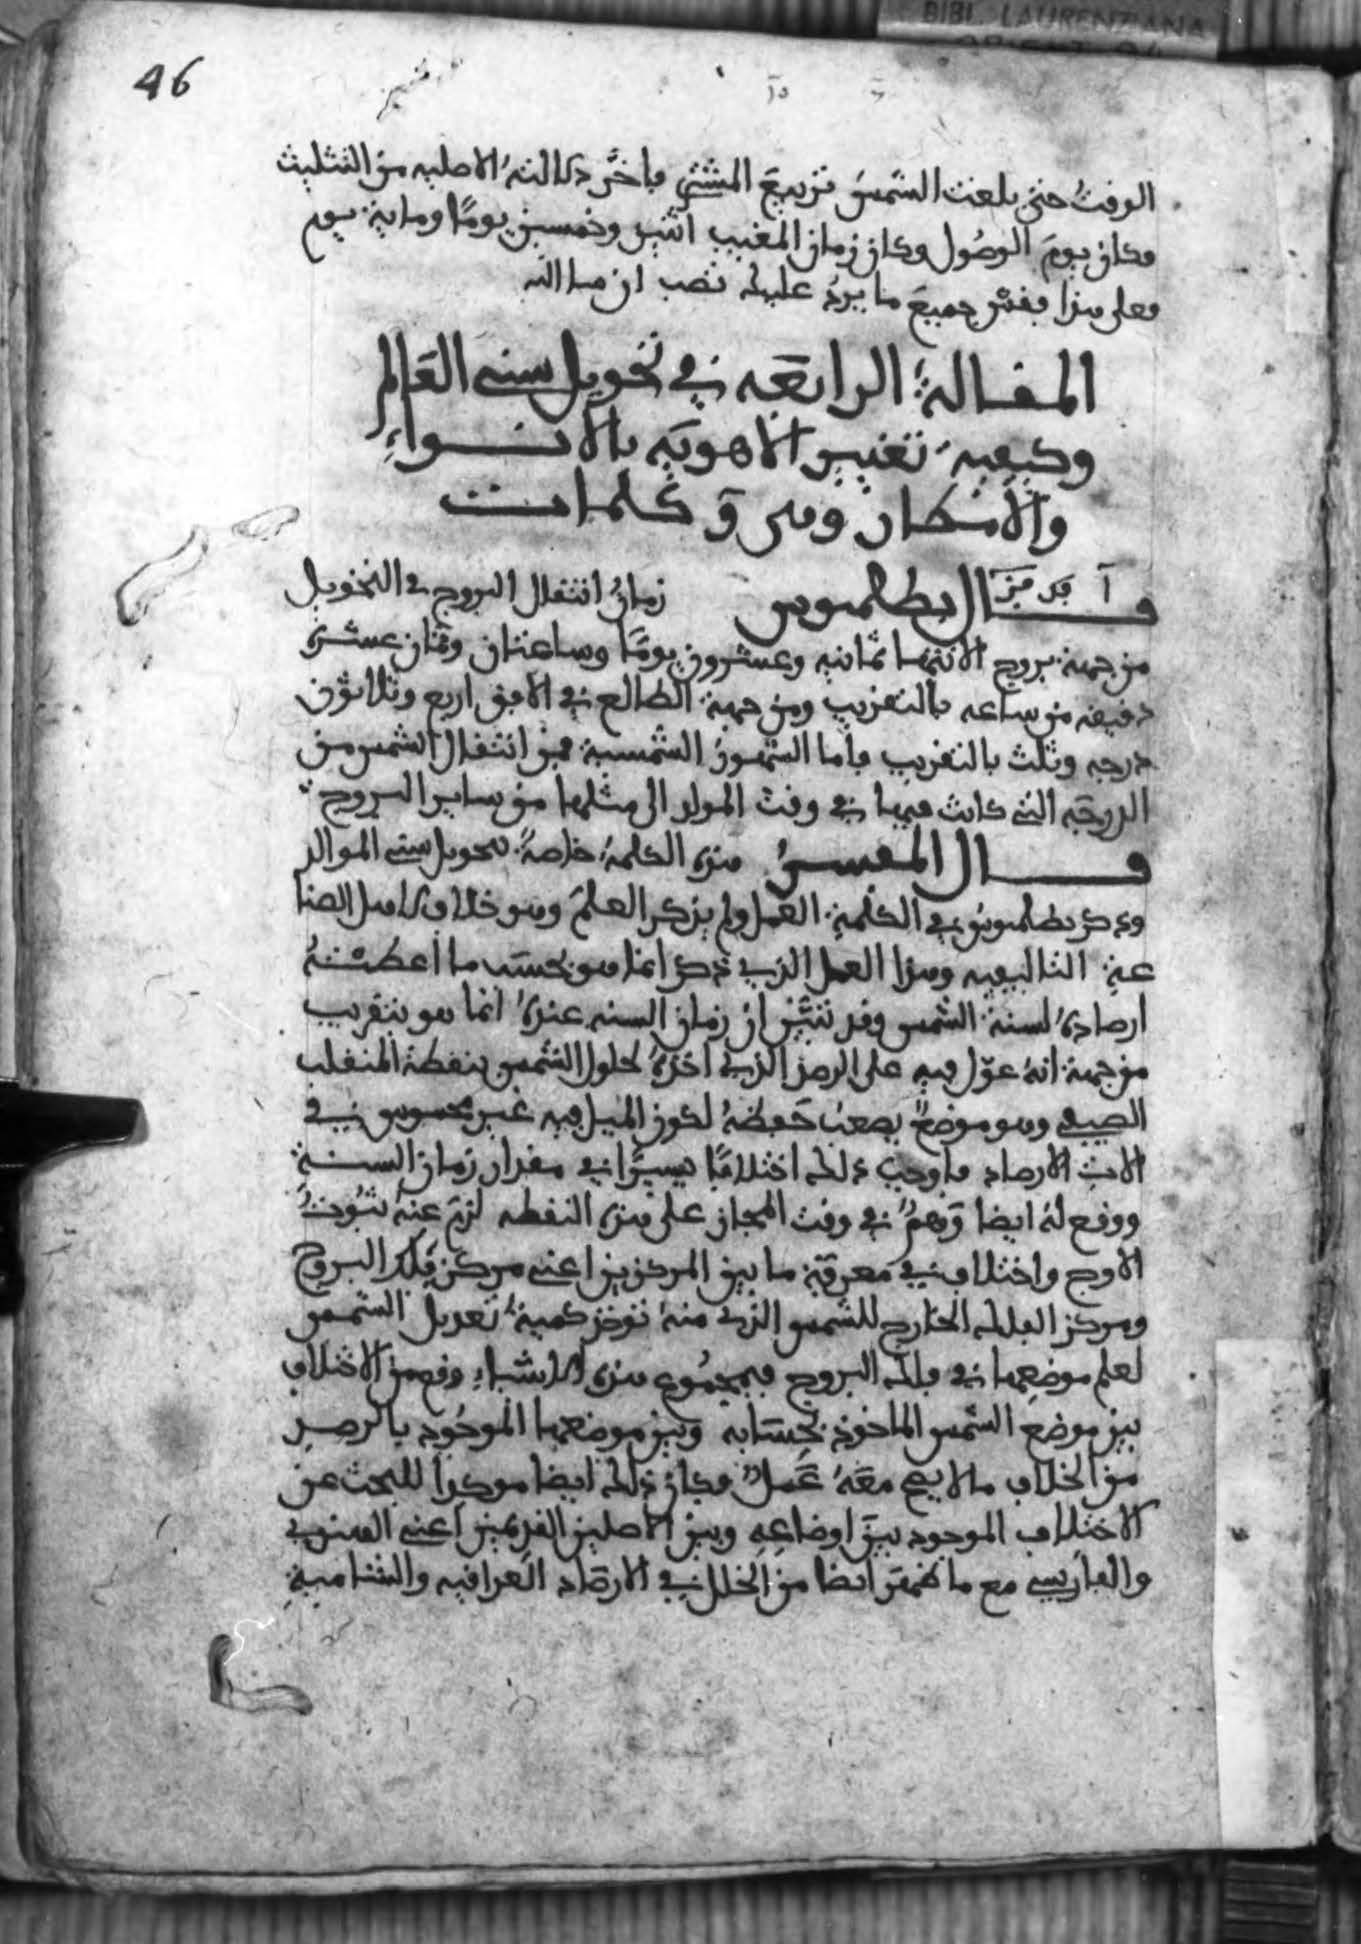 BIBL. LAURENZIANA
46
الوقت حتى بلغت الشمس تربيع المشتري فأخر دلالته الاصليه من التثليث
فكان يوم الوصول وكان زمان المغيب اثنين وخمسين يومًا وماية يوم
فعلى هذا فقس جميع ما يرد عليك تصب ان شا الله
المقالة الرابعه في تحويل سني العالم
وكيفية تغيير الاهويه بالانواء
والامطار وهي و كلمات
قال بطلميوس زمان انتقال البروج في التحويل
من جهة بروج الانتها ثمانيه وعشرون يومًا وساعتان وثمان عشرة
دقيقه من ساعه بالتقريب ومن جهة الطالع في الافق اربع وثلاثون
درجه وثلث بالتقريب فأما الشهور الشمسية فمن انتقال الشمس من
الدرجه التي كانت فيها في وقت المولد الى مثلها من ساير البروج
قال المفسر هذه الكلمة خاصة بتحويل سني الموالد
وذكر بطلميوس في الكلمة العمل ولم يذكر العلم وهو خلاف كامل الصنا
عة التاليفيه وهذا العمل الذي ذكر انما هو بحسب ما أعطته
ارصاده لسنة الشمس وقد تبين ان زمان السنه عنده انما هو بتقريب
من جهة انه عول فيه على الرصد الذي اخذه لحلول الشمس بنقطة المنقلب
الصيفي وهو موضع يصعب حفظه لكون الميل فيه غير محسوس في
الات الارصاد فأوجب ذلك اختلافًا يسيرًا في مقدار زمان السنة
ووقع له ايضا وهم في وقت المجاز على هذه النقطه لزم عنه ثبوت
الاوج واختلاف في معرفة ما بين المركزين اعني مركز فلك البروج
ومركز الفلك الخارج للشمس الذي منه توخذ كمية تعديل الشمس
لعلم موضعها في فلك البروج فبمجموع هذه الاشياء وقع من الاختلاف
بين موضع الشمس الماخوذ بحسابه وبين موضعها الموجود بالرصد
من الخلاف ما لا يصح معه عمل وكان ذلك ايضا موكدا للبحث عن
الاختلاف الموجود بين اوضاعه وبين الاصلين القديمين اعني الهندي
والفارسي مع ما ظهر ايضا من الخلل في الارصاد العراقيه والشامية